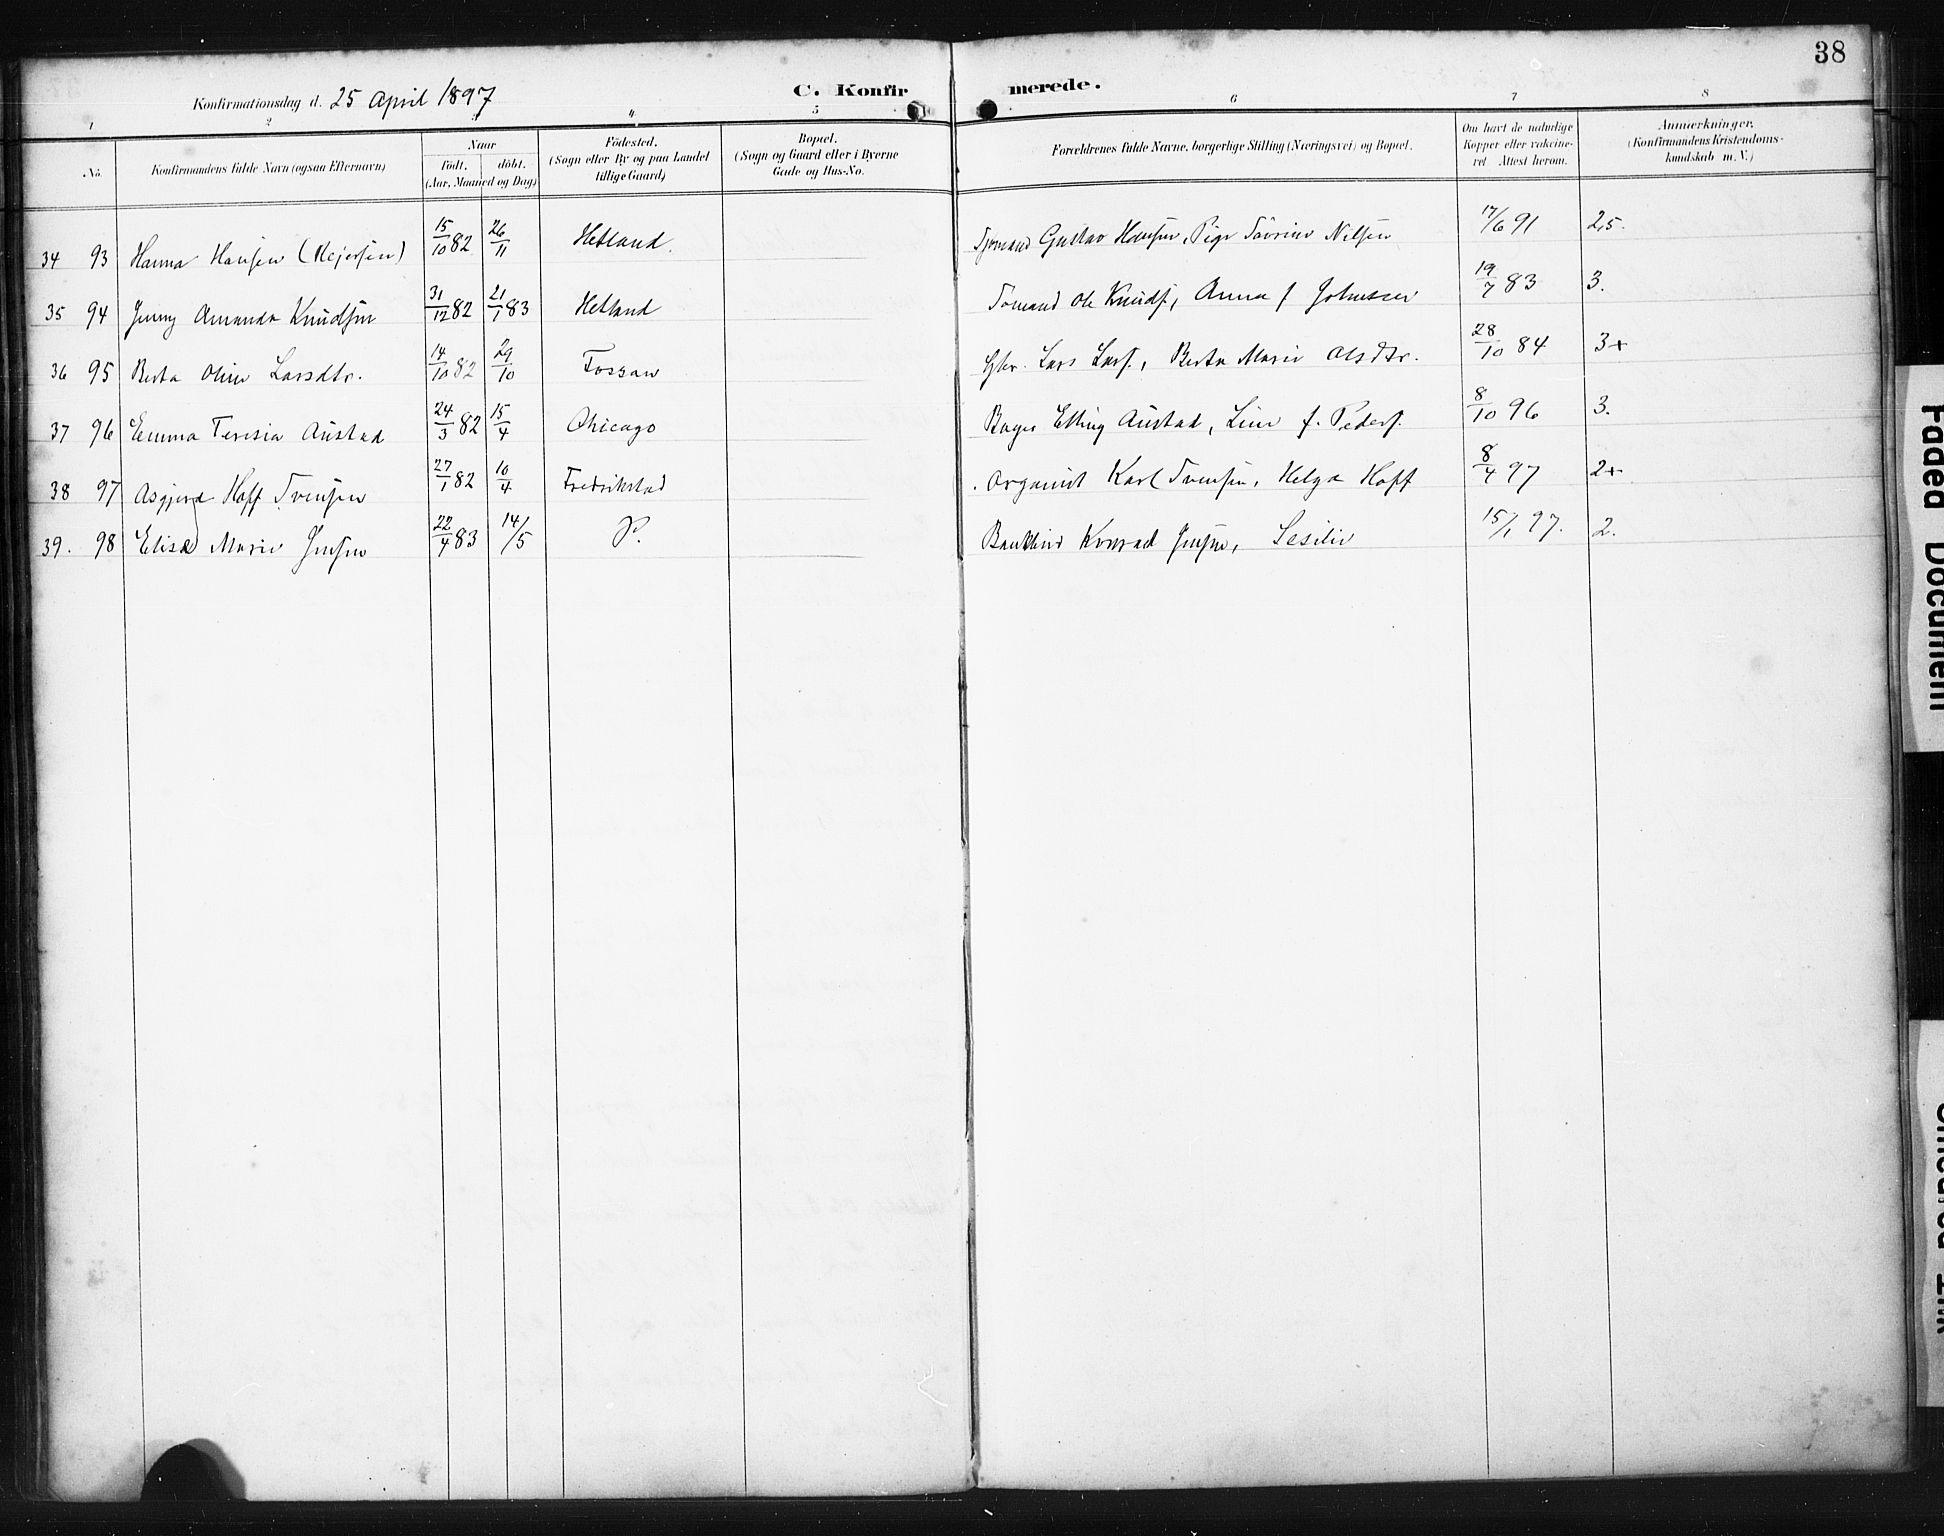 38
Konfirmationsdag d. 25 April 1897
C. Konfirmerede.
1 2 3 4 5 6 7 8
No. Konfirmandens fulde Navn (ogsaa Efternavn) Naar födt. döbt. (Aar, Maaned og Dag) Födested. (Sogn eller By og paa Landet tillige Gaard) Bopæl. (Sogn og Gaard eller i Byerne Gade og Hus-No. Forældrenes fulde Navne, borgerlige Stilling (Næringsvei) og Bopæl. Om havt de naturlige Kopper eller vakcineret Attest herom. Anmærkninger. (Konfirmandens Kristendomskundskab m. V.)
34 93 Hanna Hansen (Mejersen) 15/10 82 26/11 Hetland. Gustav Hansen, Pige Nilsen 17/6 91 2,5.
35 94 Jenny Amanda Knudsen 31/12 82 21/1 83 Hetland Ole Knuds., Anna f Johnssen 19/7 83 3.
36 95 Berta Oline Larsdtr. 14/10 82 29/10 Fossan Lars Lars., Berta Marie Olsdtr. 28/10 84 3+
37 96 Emma Teresia Austad 24/3 82 15/4 Chicago Bager Elling Austad, Line f. Peders. 8/10 96 3.
38 97 Asgjerd Hoff Svensen 27/1 82 10/4 Fredrikstad Organist Karl Svensen, Helga Hoff 8/4 97 2+
39. 98 Elise Marie Jensen 22/4 83 14/5 P. Konrad Jensen, Sesilie 15/1 97. 2.
Faded Document
Ink